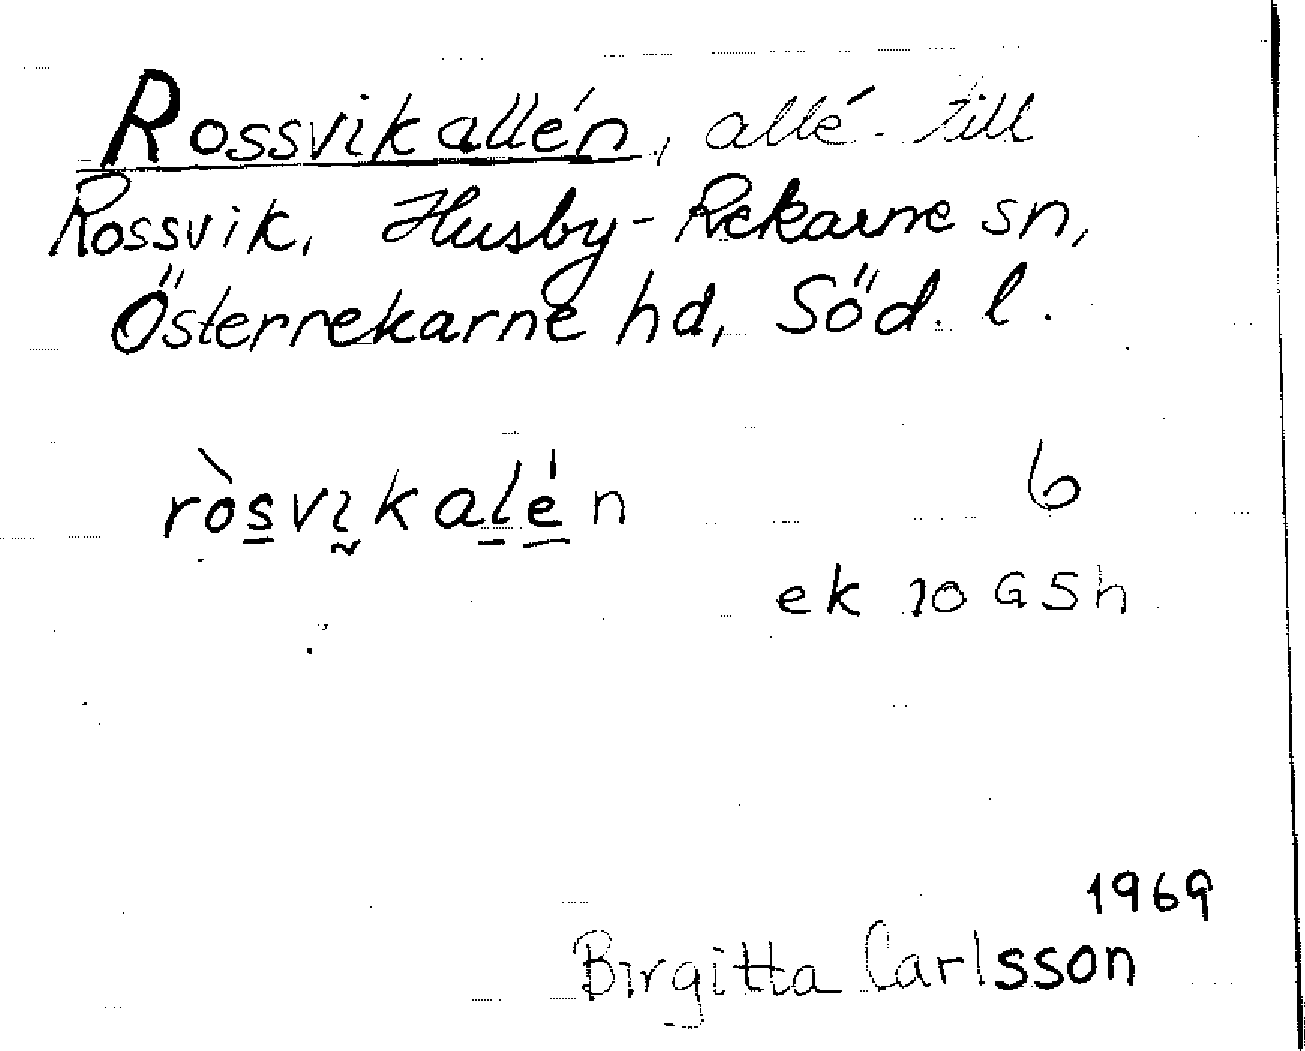 Rossvikallén, allé till
Rossvik, Husby-Rekarne sn,
Österrekarne hd, Söd. l.
ròs̲vı̰kal̲é̲n
6
ek 10 G 5 h
1969
Birgitta Carlsson